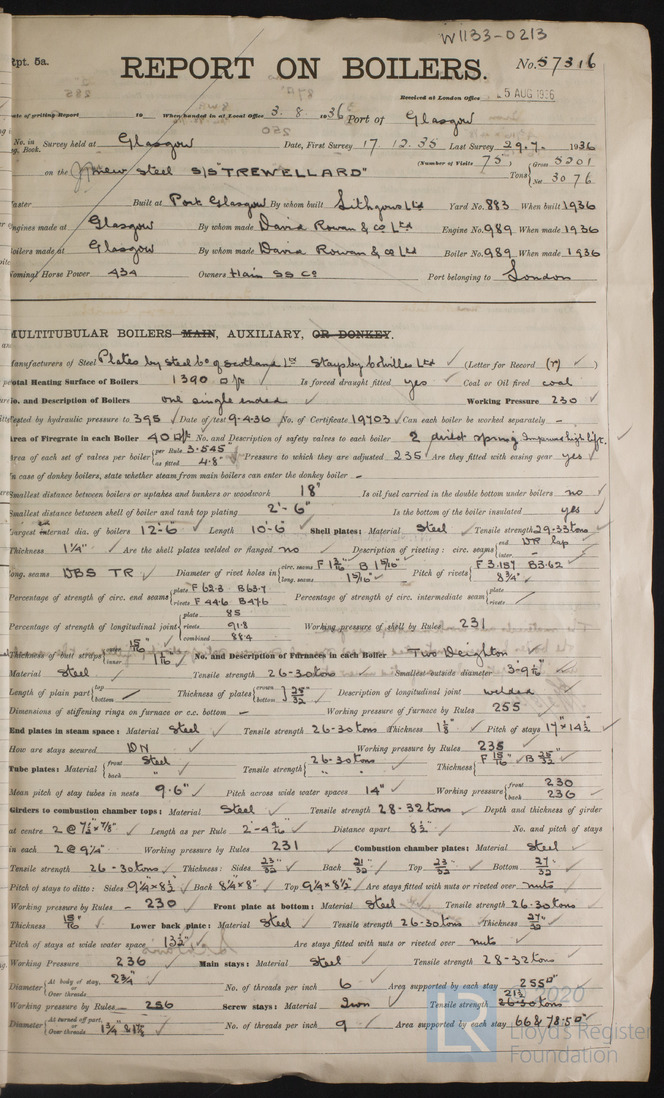 W1133-0213
Rpt. 5a.
REPORT ON BOILERS.
No. 57316
Received at London Office 5 AUG 1936
Date of writing Report to When handed in at Local Office 3. 8. 1936 Port of Glasgow
No. in Survey held at Glasgow Date, First Survey 17 12.35 Last Survey 29.7. 1936
Book.
on the new steel S/S "TREWELLARD" (Number of Visits 75) Tons Gross 5201 Net 3076
Master Built at Port Glasgow By whom built Lithgows Ltd Yard No. 883 When built 1936
Engines made at Glasgow By whom made David Rowan & Co Ltd Engine No. 989 When made 1936
Boilers made at Glasgow By whom made David Rowan & Co Ltd Boiler No. 989 When made 1936
Nominal Horse Power 434 Owners Hain SS Co Port belonging to London
MULTITUBULAR BOILERS MAIN, AUXILIARY, OR DONKEY.
Manufacturers of Steel Plates by Steel Co of Scotland Ltd Stays by Colvilles Ltd (Letter for Record (r) )
Total Heating Surface of Boilers 1390 □ ft Is forced draught fitted yes Coal or Oil fired coal
No. and Description of Boilers one single ended Working Pressure 230
Tested by hydraulic pressure to 395 Date of test 9-4-36 No. of Certificate 19703 Can each boiler be worked separately -
Area of Firegrate in each Boiler 40 □ ft No. and Description of safety valves to each boiler 2 direct spring Improved high lift.
Area of each set of valves per boiler per Rule 3.545" as fitted 4.8" Pressure to which they are adjusted 235 Are they fitted with easing gear yes
In case of donkey boilers, state whether steam from main boilers can enter the donkey boiler -
Smallest distance between boilers or uptakes and bunkers or woodwork 18" Is oil fuel carried in the double bottom under boilers no
Smallest distance between shell of boiler and tank top plating 2'-6" Is the bottom of the boiler insulated yes
Largest internal dia. of boilers 12'-6" Length 10'-6" Shell plates: Material Steel Tensile strength 29-33 tons
Thickness 1¼" Are the shell plates welded or flanged no Description of riveting: circ. seams end DR lap inter. -
long. seams DBS TR Diameter of rivet holes in circ. seams F 1 5/16" B 1 5/16" long. seams 1 5/16" Pitch of rivets F 3.157 B 3.62 8¾"
Percentage of strength of circ. end seams plate F 62.3 B 63.7 rivets F 44.6 B 47.6 Percentage of strength of circ. intermediate seam plate rivets
Percentage of strength of longitudinal joint plate 85 rivets 91.8 combined 88.4 Working pressure of shell by Rules 231
Thickness of butt straps outer 15/16" inner 1 1/16" No. and Description of Furnaces in each Boiler Two Deighton
Material Steel Tensile strength 26-30 tons Smallest outside diameter
Length of plain part top bottom Thickness of plates crown bottom 25/32" Description of longitudinal joint welded
Dimensions of stiffening rings on furnace or c.c. bottom - Working pressure of furnace by Rules 255
End plates in steam space: Material Steel Tensile strength 26-30 tons Thickness 1⅛" Pitch of stays 17" x 14½"
How are stays secured DN Working pressure by Rules 235
Tube plates: Material front Steel back " Tensile strength 26-30 tons " Thickness F 15/16" B 25/32"
Mean pitch of stay tubes in nests 9.6" Pitch across wide water spaces 14" Working pressure front 230 back 236
Girders to combustion chamber tops: Material Steel Tensile strength 28-32 tons Depth and thickness of girder
at centre 2 @ 7½" x ⅞" Length as per Rule Distance apart 8½" No. and pitch of stays
in each 2 @ 9¼" Working pressure by Rules 231 Combustion chamber plates: Material Steel
Tensile strength 26-30 tons Thickness: Sides 23/32" Back 21/32" Top 23/32" Bottom 27/32"
Pitch of stays to ditto: Sides 9¼" x 8½" Back 8¼" x 8" Top 9¼" x 8½" Are stays fitted with nuts or riveted over nuts
Working pressure by Rules - 230 Front plate at bottom: Material Steel Tensile strength 26-30 tons
Thickness 15/16" Lower back plate: Material Steel Tensile strength 26-30 tons Thickness 27/32"
Pitch of stays at wide water space 13½" Are stays fitted with nuts or riveted over nuts
Working Pressure 236 Main stays: Material Steel Tensile strength 28-32 tons
Diameter At body of stay, or Over threads 2¾" No. of threads per inch 6 Area supported by each stay 255 □"
Working pressure by Rules 256 Screw stays: Material Iron Tensile strength 21½ 26-30 tons
Diameter At turned off part, or Over threads 1¾" & 1⅞" No. of threads per inch 9 Area supported by each stay 66 & 78.5 □"
LR 2020
Lloyd's Register
Foundation